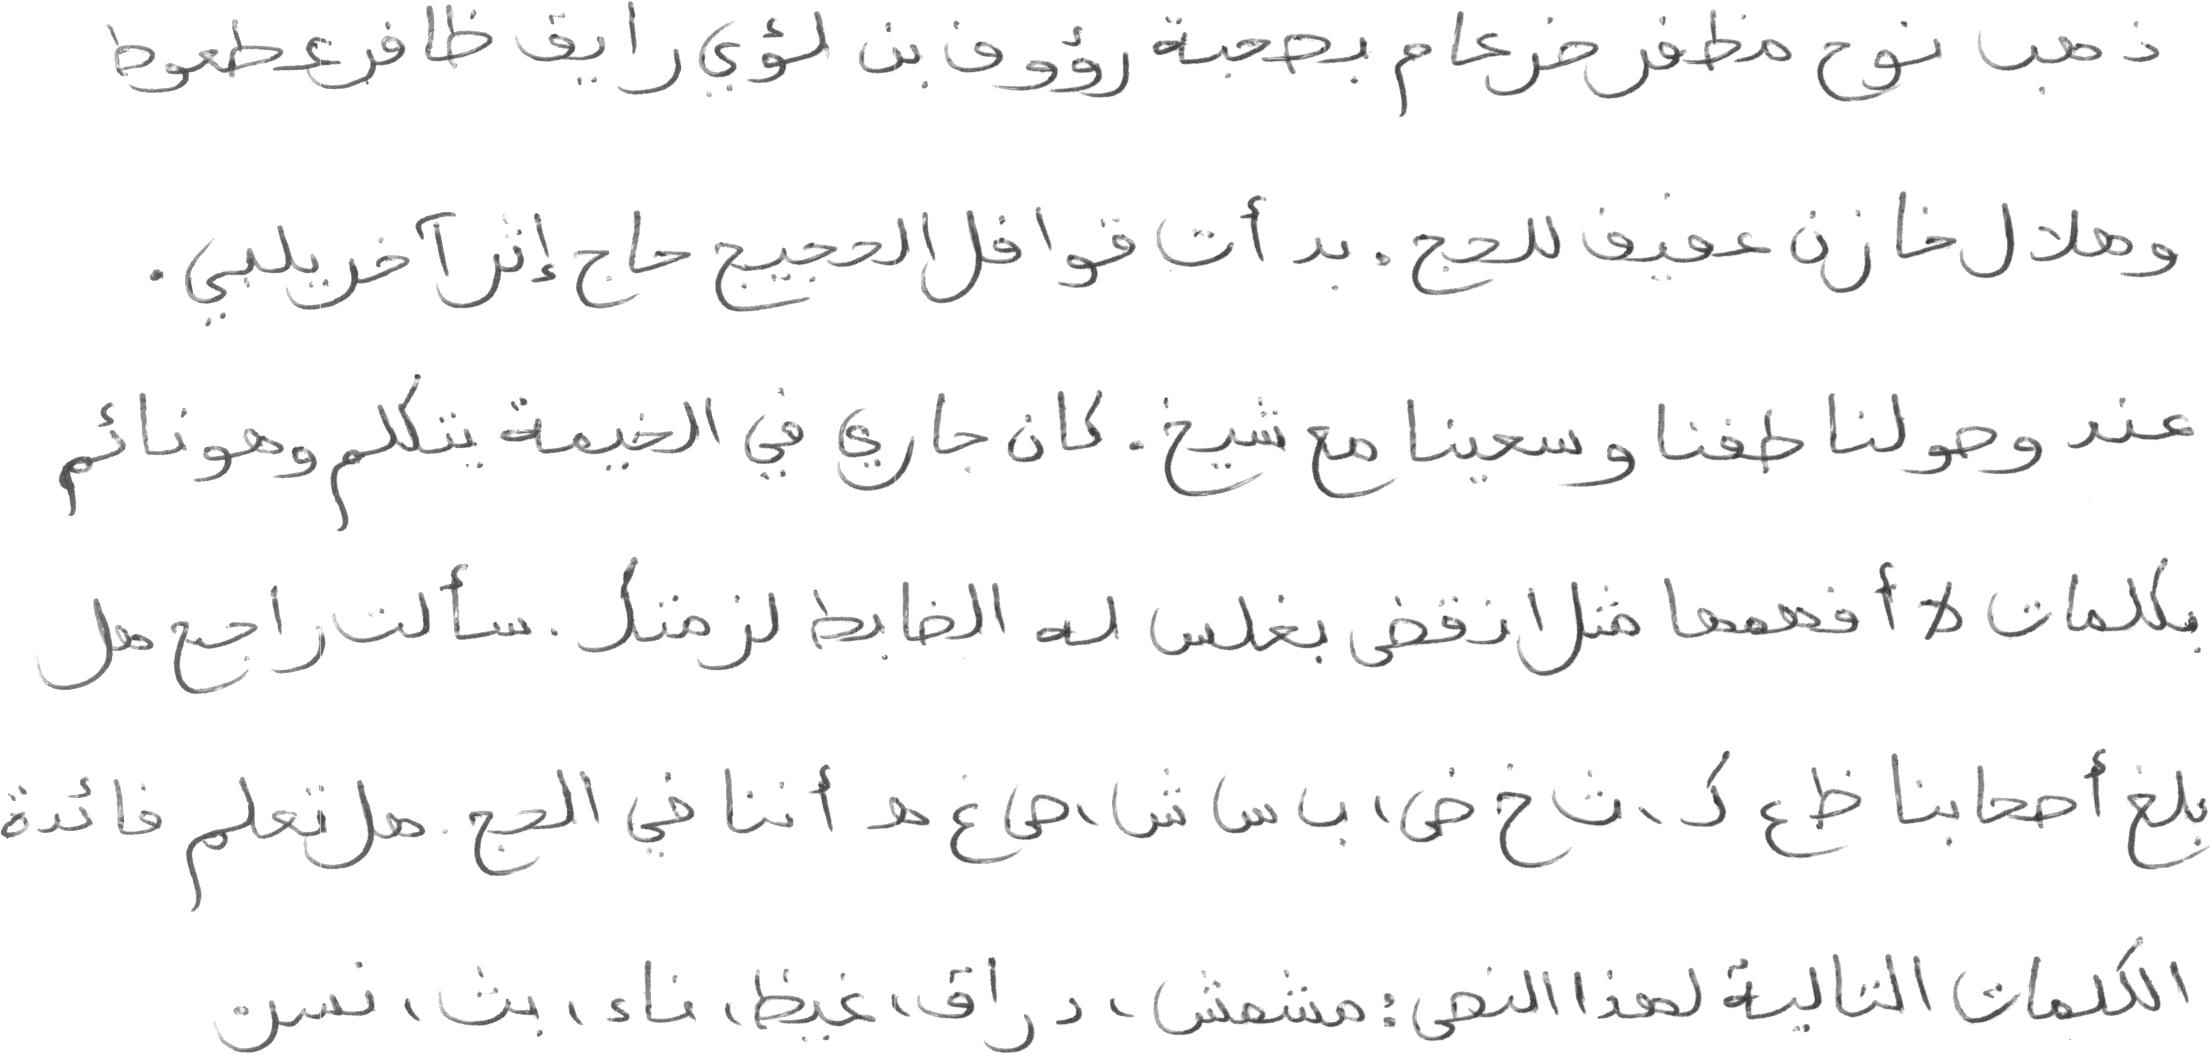 ذهب نوح مظفر ضرغام بصحبة رؤوف بن لؤي رايق ظافر عطعوط
وهلال خازن عفيف للحج . بدأت قوافل الحجيج حاج إثر آخر يلبي .
عند وصولنا طفنا وسعينا مع شيخ . كان جاري في الخيمة يتكلم وهو نائم
بكلمات لا أفهمها مثل انقض بغلس له الضابط لزمتك . سألت راجح هل
بلغ أصحابنا ظ ع ك ، ث خ ض ، ب س ش ، ص غ هـ أننا في الحج . هل تعلم فائدة
الكلمات التالية لهذا النص : مشمش ، دراق ، غيظ ، ناء ، بث ، نسن